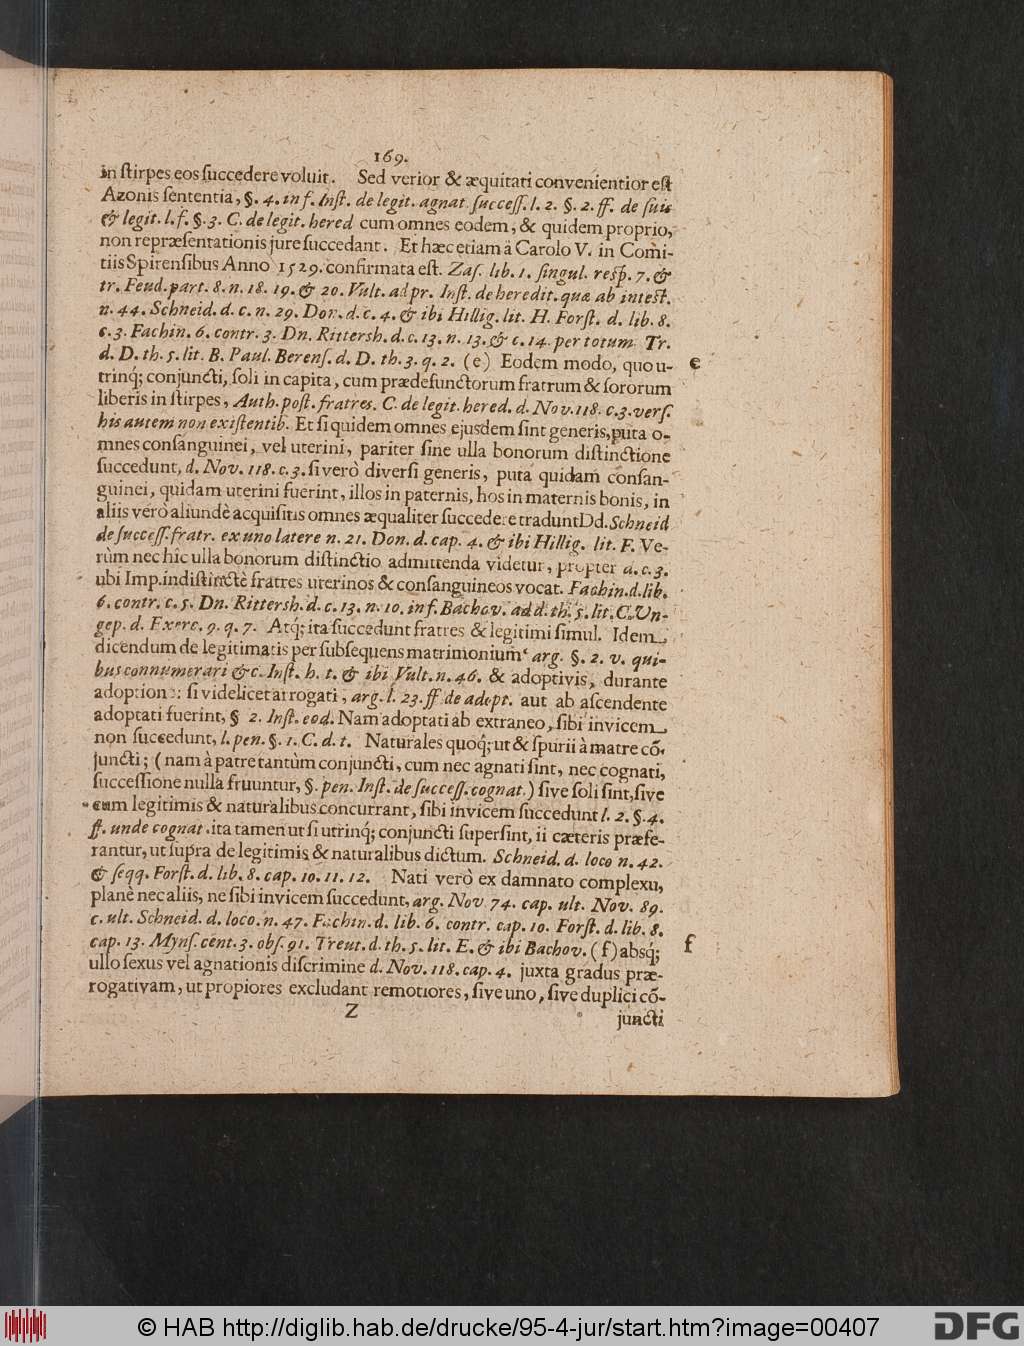 169.
in ſtirpes eos ſuccedere voluit. Sed verior & æquitati convenientior eſt
Azonis ſententia, §. 4. inf. Inſt. de legit. agnat. ſucceſſ. l. 2. §. 2. ff. de ſuis
& legit. l. f. §. 3. C. de legit. hered cum omnes eodem, & quidem proprio,
non repræſentationis jure ſuccedant. Et hæc etiam à Carolo V. in Comi-
tiis Spirenſibus Anno 1529. confirmata eſt. Zaſ. lib. 1. ſingul. reſp. 7. &
tr. Feud. part. 8. n. 18. 19. & 20. Vult. ad pr. Inſt. de heredit. quæ ab inteſt.
n. 44. Schneid. d. c. n. 29. Don. d. c. 4. & ibi Hillig. lit. H. Forſt. d. lib. 8.
c. 3. Fachin. 6. contr. 3. Dn. Rittersh. d. c. 13. n. 13. & c. 14. per totum. Tr.
d. D. th. 5. lit. B. Paul. Berenſ. d. D. th. 3. q. 2. (e) Eodem modo, quo u-
e
trinq́; conjuncti, ſoli in capita, cum prædefunctorum fratrum & ſororum
liberis in ſtirpes, Auth. poſt. fratres. C. de legit. hered. d. Nov. 118. c. 3. verſ.
his autem non exiſtentib. Et ſi quidem omnes ejusdem ſint generis, puta o-
mnes conſanguinei, vel uterini, pariter ſine ulla bonorum diſtinctione
ſuccedunt, d. Nov. 118. c. 3. ſi verò diverſi generis, puta quidam conſan-
guinei, quidam uterini fuerint, illos in paternis, hos in maternis bonis, in
aliis verò aliundè acquiſitis omnes æqualiter ſuccedere tradunt Dd. Schneid
de ſucceſſ. fratr. ex uno latere n. 21. Don. d. cap. 4. & ibi Hillig. lit. F. Ve-
rùm nec hîc ulla bonorum diſtinctio admittenda videtur, propter d. c. 3.
ubi Imp. indiſtinctè fratres uterinos & conſanguineos vocat. Fachin. d. lib.
6. contr. c. 5. Dn. Rittersh. d. c. 13. n. 10. inf. Bachov. ad d. th. 5. lit. C. Un-
gep. d. Exerc. 9. q. 7. Atq́; ita ſuccedunt fratres & legitimi ſimul. Idem
dicendum de legitimatis per ſubſequens matrimonium arg. §. 2. v. qui-
bus connumerari &c. Inſt. h. t. & ibi Vult. n. 46. & adoptivis, durante
adoptione: ſi videlicet arrogati, arg. l. 23. ff de adopt. aut ab aſcendente
adoptati fuerint, § 2. Inſt. eod. Nam adoptati ab extraneo, ſibi invicem
non ſuccedunt, l. pen. §. 1. C. d. t. Naturales quoq́; ut & ſpurii à matre cõ-
juncti; (nam à patre tantùm conjuncti, cum nec agnati ſint, nec cognati,
ſucceſſione nulla fruuntur, §. pen. Inſt. de ſucceſſ. cognat.) ſive ſoli ſint, ſive
cum legitimis & naturalibus concurrant, ſibi invicem ſuccedunt l. 2. §. 4.
ff. unde cognat. ita tamen ut ſi utrinq́; conjuncti ſuperſint, ii cæteris præfe-
rantur, ut ſupra de legitimis & naturalibus dictum. Schneid. d. loco n. 42.
& ſeqq. Forſt. d. lib. 8. cap. 10. 11. 12. Nati verò ex damnato complexu,
planè nec aliis, ne ſibi invicem ſuccedunt, arg. Nov 74. cap. ult. Nov. 89.
c. ult. Schneid. d. loco. n. 47. Fachin. d. lib. 6. contr. cap. 10. Forſt. d. lib. 8.
cap. 13. Mynſ. cent. 3. obſ. 91. Treut. d. th. 5. lit. E. & ibi Bachov. (f) absq́;
f
ullo ſexus vel agnationis diſcrimine d. Nov. 118. cap. 4. juxta gradus præ-
rogativam, ut propiores excludant remotiores, ſive uno, ſive duplici cõ-
Z
juncti
© HAB http://diglib.hab.de/drucke/95-4-jur/start.htm?image=00407
DFG